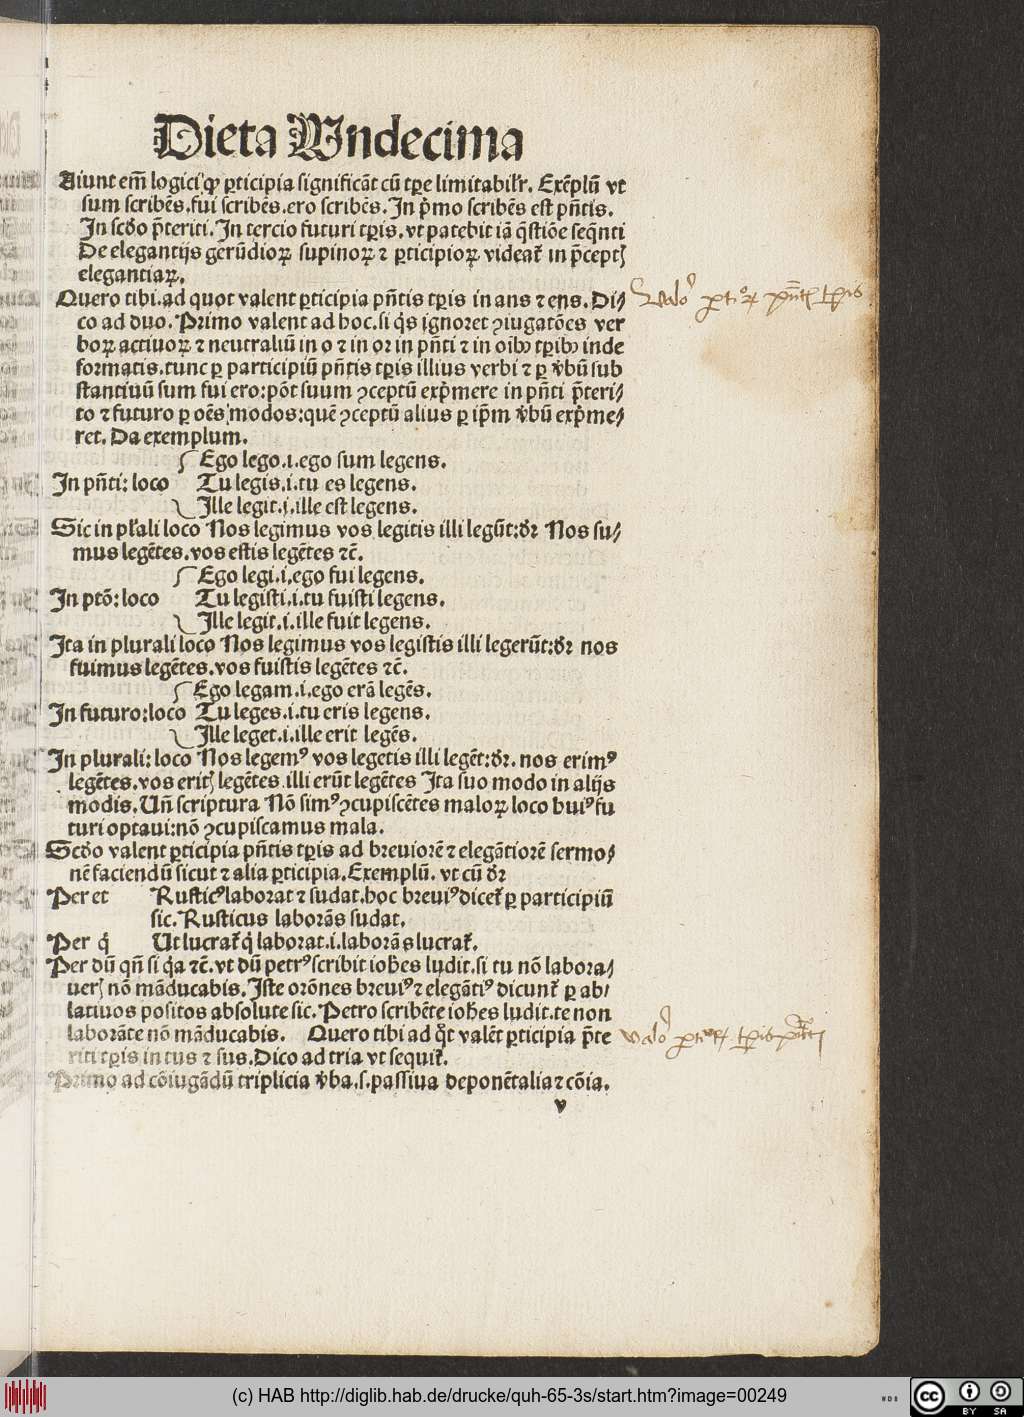 Dieta Undecima
Aiunt em̄ logici ꝙ ꝑticipia significāt cū tꝑe limitabilr̄. Exēplū vt
sum scribēs.fui scribēs.ero scribēs.In p̄mo scribēs est pn̄tis.
In scd̄o p̄teriti.In tercio futuri tꝑis.vt patebit iā q̄stiōe seq̄nti
De elegantijs gerūdioꝝ supinoꝝ ⁊ ꝑticipioꝝ videat᷑ in p̄ceptꝭ
elegantiaꝝ.
Quero tibi.ad quot valent ꝑticipia pn̄tis tꝑis in ans ⁊ ens. Di⸗
co ad duo. Primo valent ad hoc.si q̇s ignoret ꝯiugatōes ver
boꝝ actiuoꝝ ⁊ neutraliū in o ⁊ in or in pn̄ti ⁊ in oībꝰ tꝑibꝰ inde
formatis.tunc ꝑ participiū pn̄tis tꝑis illius verbi ⁊ ꝑ v̄bū sub
stantiuū sum fui ero:pōt suum ꝯceptū exp̄mere in pn̄ti p̄teri⸗
to ⁊ futuro ꝑ oēs modos:quē ꝯceptū alius ꝑ ip̄m v̄bū exp̄me⸗
ret. Da exemplum.
Ego lego.i.ego sum legens.
In pn̄ti: loco Tu legis.i.tu es legens.
Ille legit.i.ille est legens.
Sic in pl̄ali loco Nos legimus vos legitis illi legūt:dr̄ Nos su⸗
mus legētes.vos estis legētes ⁊c̄.
Ego legi.i.ego fui legens.
In ptō: loco Tu legisti.i.tu fuisti legens.
Ille legit.i.ille fuit legens.
Ita in plurali loco Nos legimus vos legistis illi legerūt:dr̄ nos
fuimus legētes.vos fuistis legētes ⁊c̄.
Ego legam.i.ego erā legēs.
In futuro:loco Tu leges.i.tu eris legens.
Ille leget.i.ille erit legēs.
In plurali: loco Nos legemꝰ vos legetis illi legēt:dr̄. nos erimꝰ
legētes.vos eritꝭ legētes.illi erūt legētes Ita suo modo in alijs
modis.Un̄ scriptura Nō simꝰ ꝯcupiscētes maloꝝ loco huiꝰ fu
turi optaui:nō ꝯcupiscamus mala.
Scd̄o valent ꝑticipia pn̄tis tꝑis ad breuiorē ⁊ elegātiorē sermo⸗
nē faciendū sicut ⁊ alia ꝑticipia.Exemplū. vt cū dr̄
Per et Rusticꝰ laborat ⁊ sudat.hoc breuiꝰ dicet᷑ ꝑ participiū
sic. Rusticus laborās sudat.
Per q̇ Ut lucrat᷑ q̇ laborat.i.laborās lucrat᷑.
Per dū qn̄ si q̇a ⁊c̄.vt dū petrꝰ scribit ioh̄es ludit.si tu nō labora⸗
uerꝭ nō māducabis.Iste orōnes breuiꝰ ⁊ elegātiꝰ dicunt᷑ ꝑ ab⸗
latiuos positos absolute sic. Petro scribēte ioh̄es ludit.te non
laborāte nō māducabis. Quero tibi ad qͦt valēt ꝑticipia p̄te
riti tꝑis in tus ⁊ sus.Dico ad tria vt sequit᷑.
Primo ad cōiugādū triplicia v̄ba.s.passiua deponētalia ⁊ cōia.
v
Valoꝛ ꝑtioꝝ pn̄tꝭ tꝑis
valoꝛ ꝑtioꝝ tꝑis p̄teꝭ
(c) HAB http://diglib.hab.de/drucke/quh-65-3s/start.htm?image=00249
WDB
CC BY SA